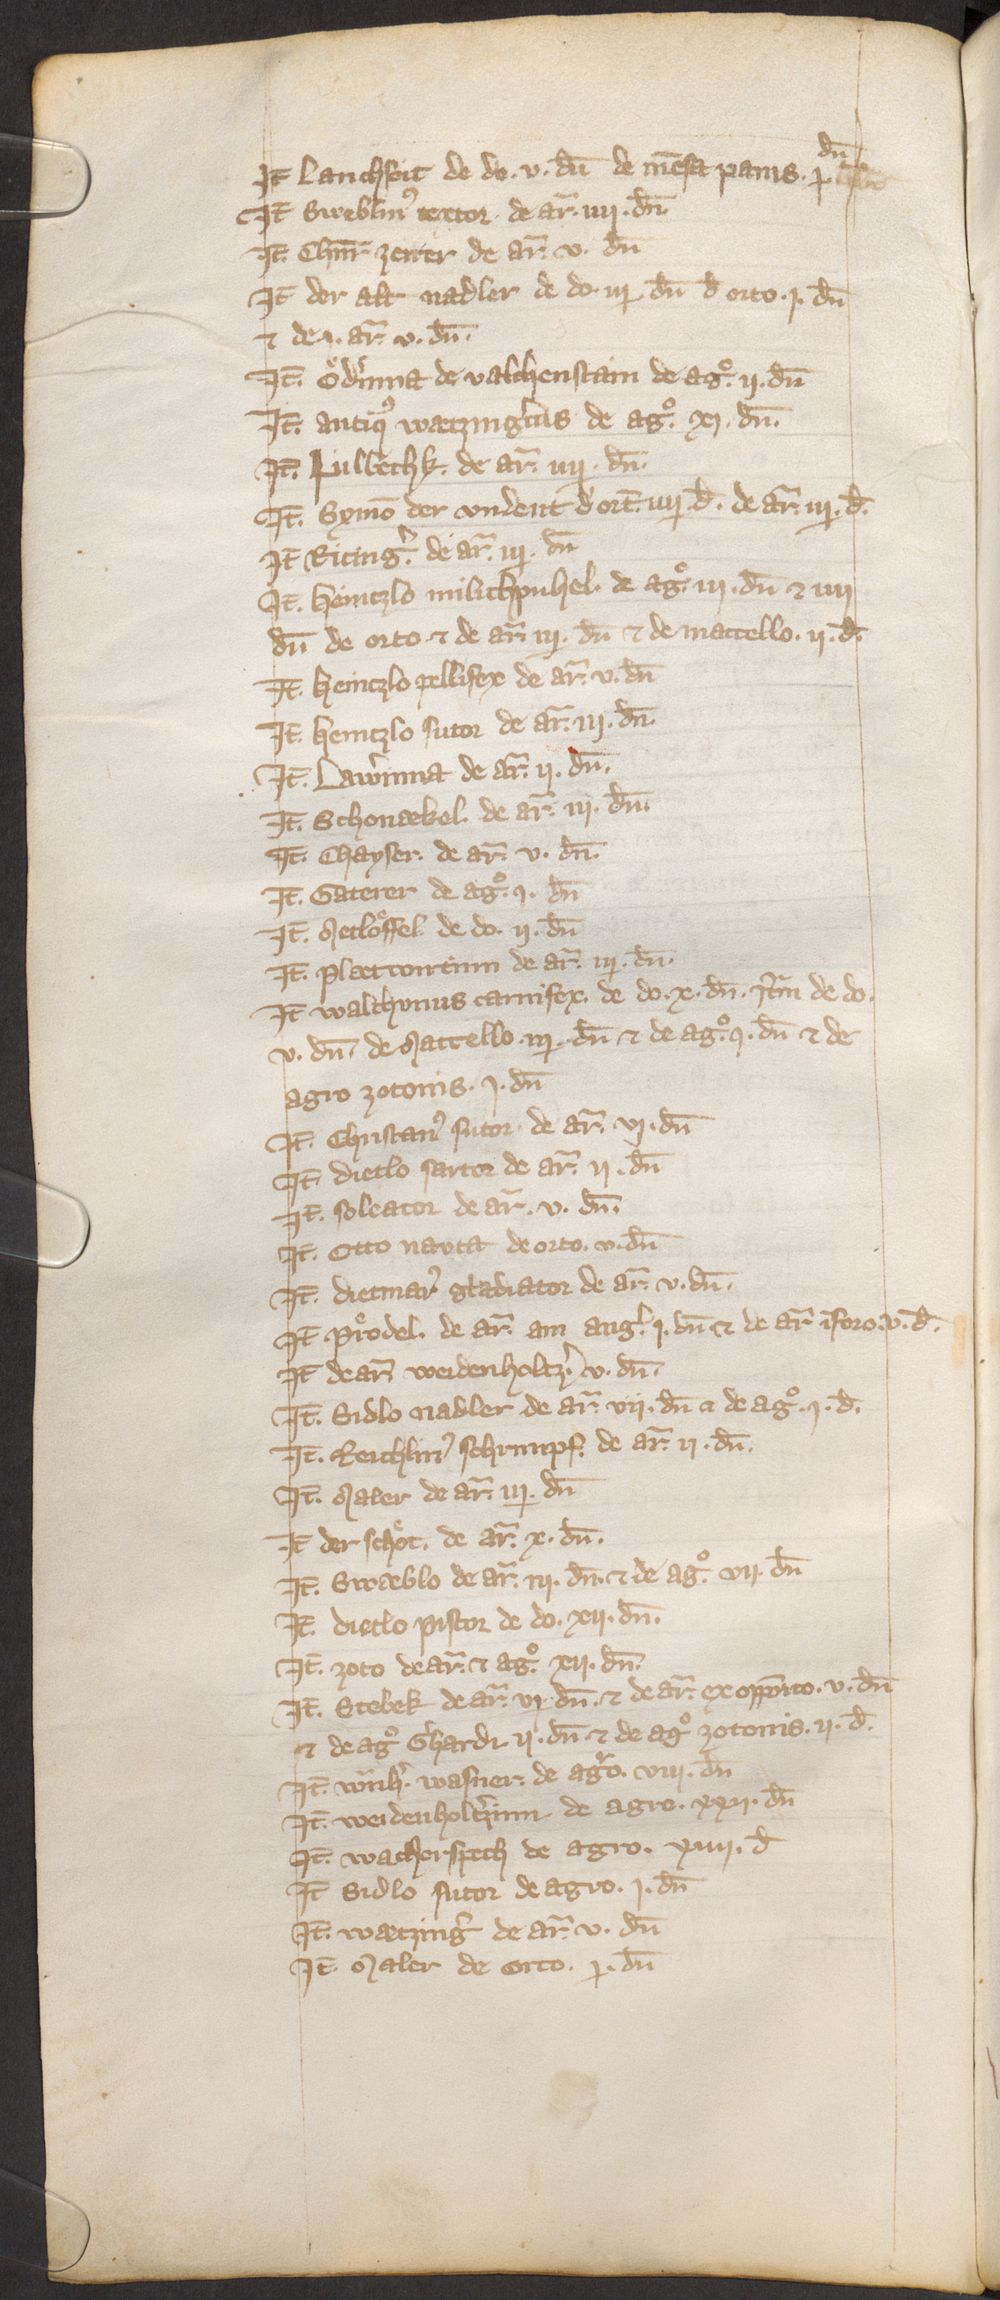 It̄ Lanchfoit de do. v. dn̄ de mēsa panis. p. dn̄
It̄ Sweblin9 textor. de ar̄. iiij. dn̄.
It̄. Chnr̄ zerrer de ar̄. v. dn̄
It̄ der alt nadler de do. iij dn̄ d̄ orto. j. dn̄
⁊ de. j. ar̄ v. dn̄.
It̄. Ödinna de valchenstain de agͦ. ij. dn̄
It̄. antiqȝ wætzinger̄us de agͦ. xj. dn̄.
It̄. Pullechk. de ar̄. iiij. dn̄.
It̄. Symō der vnder̄t d' ort̄. iiij. d̄. de ar̄. iij. d̄.
It̄ Riting'. de ar̄. iij. dn̄
It̄. heintzlo milichpuhel. de agͦ. iij. dn̄ ⁊ iiij
dn̄ de orto ⁊ de ar̄ iij. dn̄ ⁊ de maccello. ij. d̄.
It̄. heintzlo pellifex de ar̄. v. dn̄
It̄. heintzlo sutor de ar̄. iij. dn̄.
It̄. Lawrinna de ar̄. ij. dn̄.
It̄. Schonækel. de ar̄. iij. dn̄.
It̄. Chayser. de ar̄. v. dn̄.
It̄. Gaterer de agͦ. j. dn̄
It̄. Metlöffel de do. ij. dn̄
It̄. plættconrinn de ar̄. iij. dn̄.
It̄ walchunus carnifex. de do. x. dn̄. Itm̄ de do.
v. dn̄. de Maccello. iij. dn̄ ⁊ de agͦ. j. dn̄ ⁊ de
agro zotonis. j. dn̄
It̄. Christan9 sutor. de ar̄. vj. dn̄
It̄. dietlo sartor de ar̄. ij. dn̄
It̄. soleator de ar̄. v. dn̄.
It̄. Otto nauta de orto. v. dn̄
It̄. dietmar9 gladiator de ar̄. v. dn̄.
It̄ Prödel. de ar̄. am ang'. j. dn̄ ⁊ de ar̄ ī foro. v. d̄.
It̄ de ar̄ weidenholtz' v. dn̄.
It̄. Sidlo nadler de ar̄. vii. dn̄ ⁊ de agͦ. j. d̄.
It̄. Reichlin9 schrimpf. de ar̄. ij. dn̄.
It̄. Maler de ar̄. iij. dn̄
It̄ der schöt. de ar̄. x. dn̄.
It̄. Swæblo de ar̄. iij. dn̄. ⁊ de agͦ. vii. dn̄
It̄. dietlo pistor de do. xij. dn̄.
It̄. zoto de ar̄. ⁊ agͦ. xij. dn̄.
It̄. Stebek de ar̄. vj. dn̄. ⁊ de ar̄. ex opp̄ito. v. dn̄
⁊ de agͦ Ghardi ij. dn̄ ⁊ de agͦ zotonis. ij. d̄.
It̄. wnh'. wasner. de agro. viii. dn̄
It̄. weidenholtz'inn de agro. xxij. dn̄
It̄. wacherspech de agro. xiiij. d̄
It̄ Sidlo sutor de agro. j. dn̄
It̄. wætzing' de ar̄. v. dn̄
It̄. Maler de orto. j. dn̄